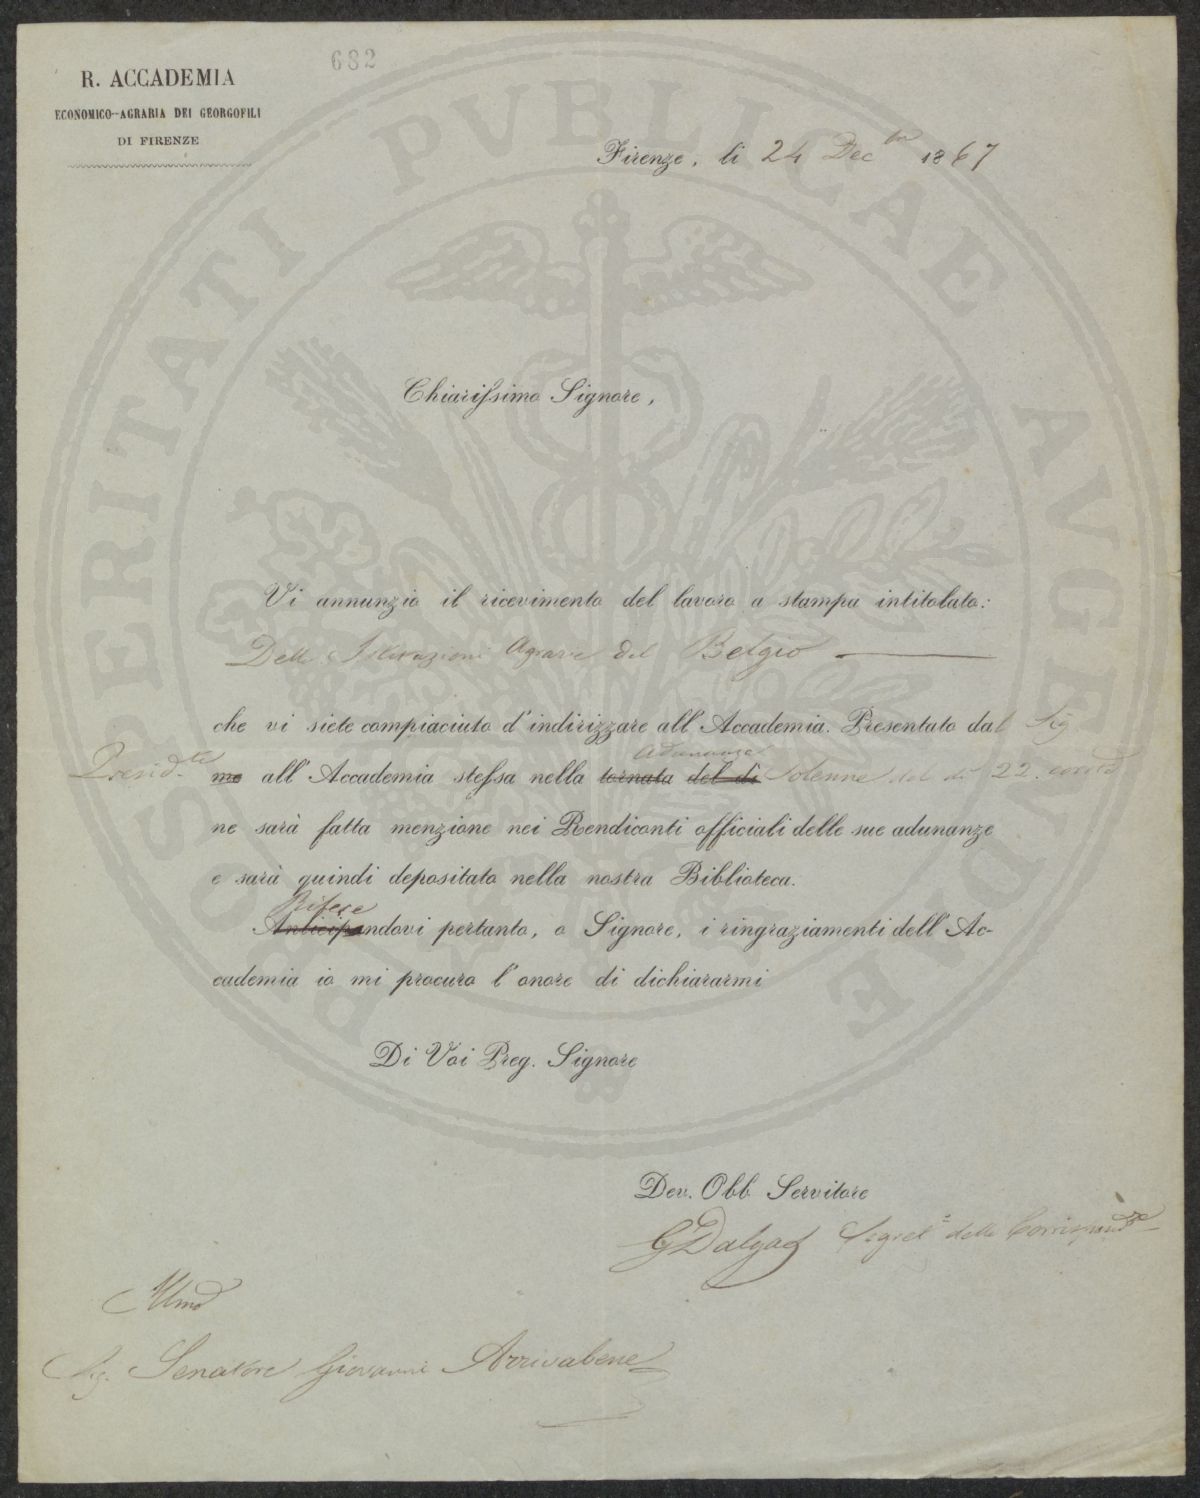 682
R. ACCADEMIA
ECONOMICO-AGRARIA DEI GEORGOFILI
DI FIRENZE
Firenze, li 24 Dec bre 1867
PROSPERITATI PVBLICAE AVGENDAE
Chiarissimo Signore,
Vi annunzio il ricevimento del lavoro a stampa intitolato:
Delle Istituzioni Agrarie del Belgio
che vi siete compiaciuto d'indirizzare all'Accademia. Presentato dal Sig.
Presid.te me all'Accademia stessa nella tornata del di adunanza Solenne del dì 22. corr.te
ne sarà fatta menzione nei Rendiconti officiali delle sue adunanze
e sarà quindi depositato nella nostra Biblioteca.
Rifere
Anticipandovi pertanto, o Signore, i ringraziamenti dell'Ac-
cademia io mi procuro l'onore di dichiararmi
Di Voi Preg. Signore
Dev. Obb Servitore
G Dalgas Segret.o delle Corrispond.ze
Illmo
Sig. Senatore Giovanni Arrivabene